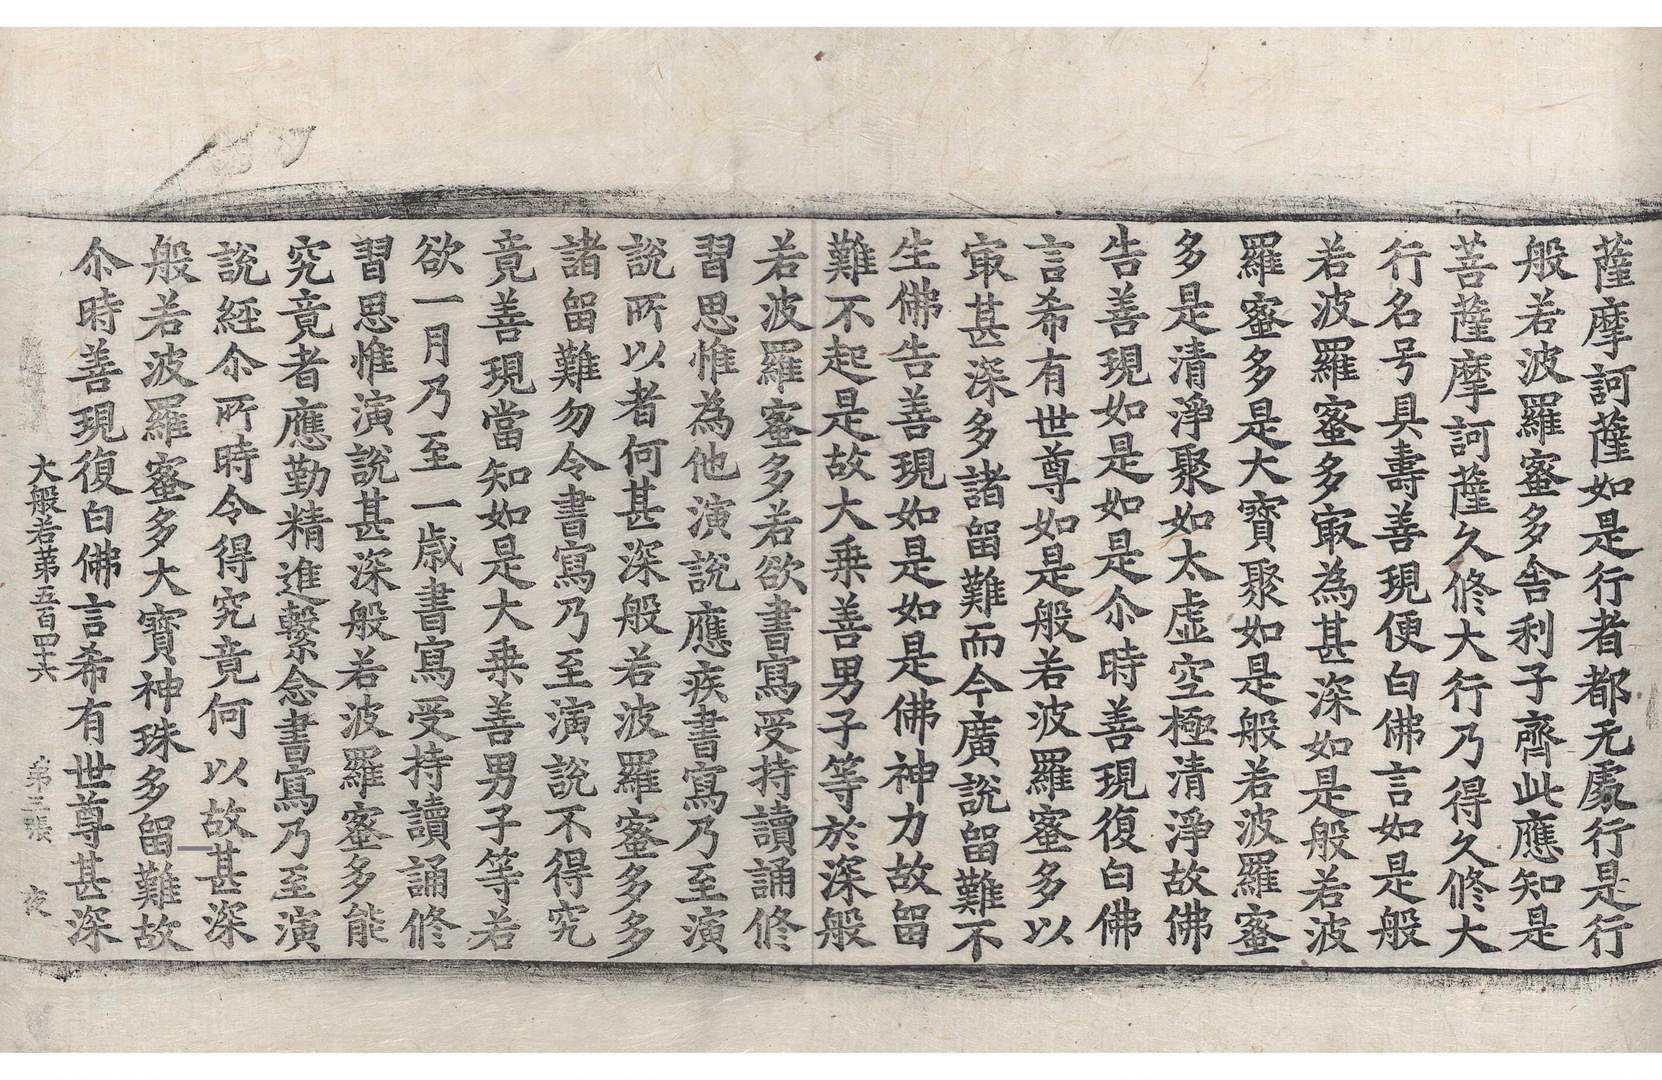 薩摩訶薩如是行者都无處行是行
般若波羅蜜多舍利子齊此應知是
菩薩摩訶薩久修大行乃得久修大
行名号具壽善現便白佛言如是般
若波羅蜜多㝡為甚深如是般若波
羅蜜多是大寶聚如是般若波羅蜜
多是清淨聚如太虛空極清淨故佛
告善現如是如是尒時善現復白佛
言希有世尊如是般若波羅蜜多以
㝡甚深多諸留難而今廣說留難不
生佛告善現如是如是佛神力故留
難不起是故大乗善男子等於深般
若波羅蜜多若欲書寫受持讀誦修
習思惟為他演說應疾書寫乃至演
說所以者何甚深般若波羅蜜多多
諸留難勿令書寫乃至演說不得究
竟善現當知如是大乗善男子等若
欲一月乃至一歲書寫受持讀誦修
習思惟演說甚深般若波羅蜜多能
究竟者應勤精進繫念書寫乃至演
說經尒所時令得究竟何以故甚深
般若波羅蜜多大寶神珠多留難故
尒時善現復白佛言希有世尊甚深
大般若第五百四十六 第三張 夜